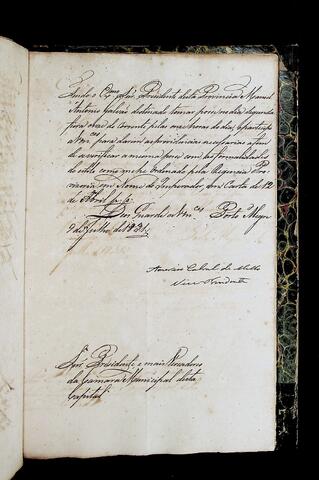 Tendo o Exmo Snr. Presidente desta Provincia Manoel
Antonio Galvão destinado tomar posse no dia segunda
feira onze do corrente pelas onze horas do dia, o participo
a Vmces para darem as providencias necessarias afim
de se verificar a mesma posse com as formalidades
do estilo como me he ordenado pela Regencia Pro
visoria em Nome do Imperador em Carta de 12
de Abril p. p.
Deos Guarde a Vmces Porto Alegre
9 de Julho de 1831.
Americo Cabral de Mello
Vice Presidente
Snrs. Presidente e mais Vereadores
da Camara Municipal desta
Capital